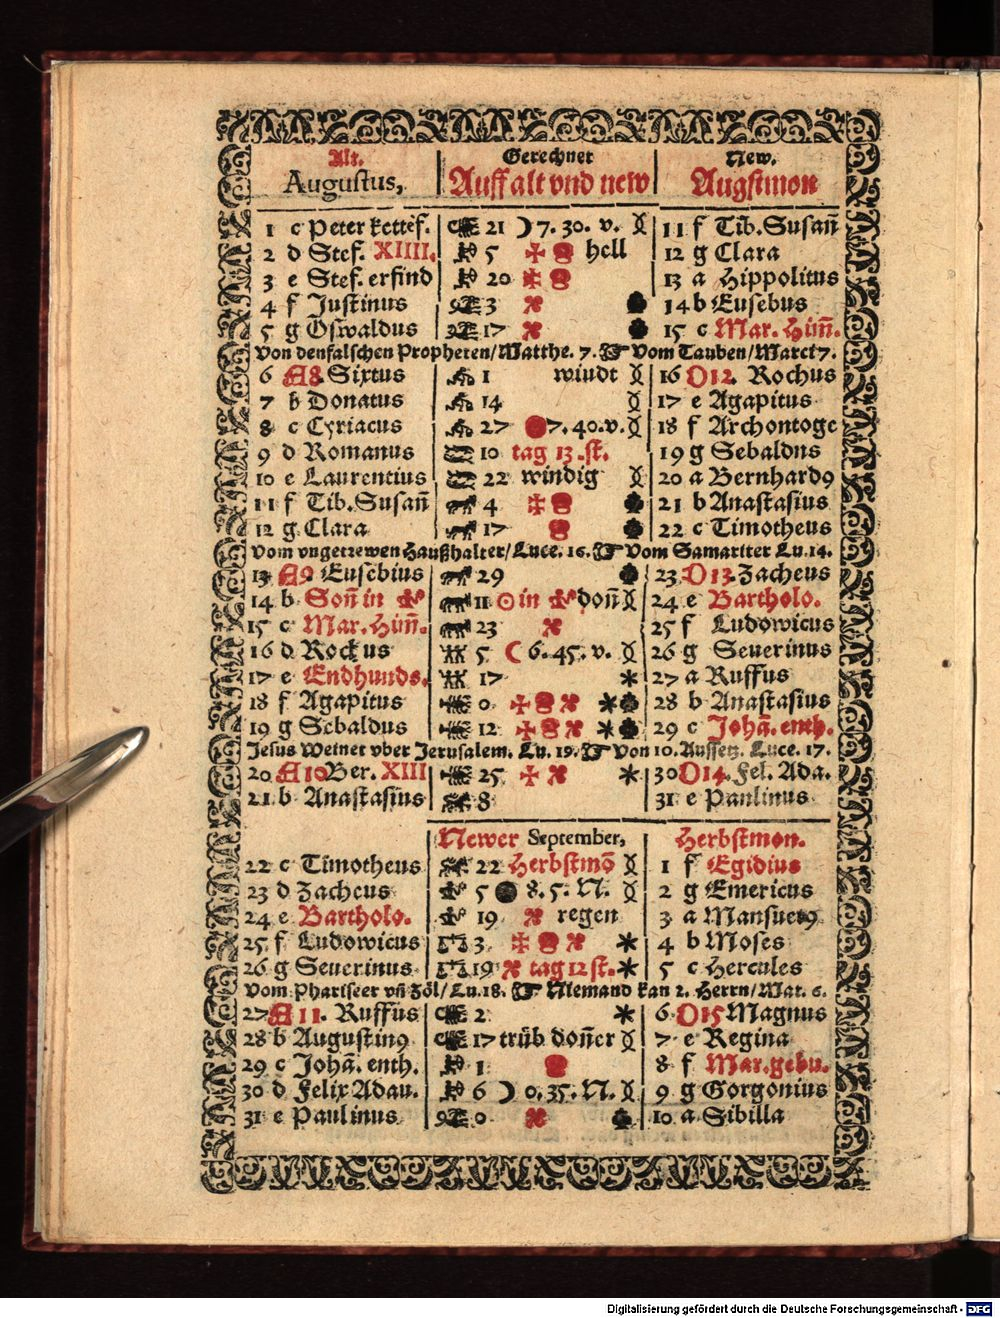 Alt. Gerechnet New.
Augustus, Auff alt vnd new Augstmon
1 c Peter kettēf. 21 ☽ 7. 30. v. 11 f Tib. Susañ
2 d Stef. XIIII. 5 hell 12 g Clara
3 e Stef. erfind 20 13 a Hippolitus
4 f Justinus 3 14 b Eusebus
5 g Oswaldus 17 15 c Mar. Him̃.
Von den falschen Propheten/ Matthe. 7. ☞ Vom Tauben/ Marci 7.
6 A8 Sixtus 1 windt 16 D12. Rochus
7 b Donatus 14 17 e Agapitus
8 c Cyriacus 27 7. 40. v. 18 f Archontoge
9 d Romanus 10 tag 13. st. 19 g Sebaldus
10 e Laurentius 22 windig 20 a Bernhard9
11 f Tib. Susañ 4 21 b Anastasius
12 g Clara 17 22 c Timotheus
Vom vngetrewen Haußhalter/ Luce. 16. ☞ Vom Samariter Lu. 14.
13 A9 Eusebius 29 23 D13 Zacheus
14 b Soñ in 11 ☉ in doñ 24 e Bartholo.
15 c Mar. Him̃. 23 25 f Ludowicus
16 d Rochus 5 ☾ 6. 45. v. 26 g Seuerinus
17 e Endhunds. 17 27 a Ruffus
18 f Agapitus 0 28 b Anastasius
19 g Sebaldus 12 29 c Johā. enth.
Jesus Weinet vber Jerusalem. Lu. 19. ☞ Von 10. Aussetz. Luce. 17.
20 A10 Ber. XIII 25 30 D14. Fel. Ada.
21 b Anastasius 8 31 e Paulinus
Newer September, Herbstmon.
22 c Timotheus 22 Herbstmō 1 f Egidius
23 d Zacheus 5 8. 5. N. 2 g Emericus
24 e Bartholo. 19 regen 3 a Mansuet9
25 f Ludowicus 3 4 b Moses
26 g Seuerinus 19 tag 12 st. 5 c Hercules
Vom Phariseer vñ Zöl/ Lu. 18. ☞ Niemand kan 2. Herrn/ Mat. 6.
27 A11. Ruffus 2 6 D15 Magnus
28 b Augustin9 17 trüb doñer 7 e Regina
29 c Johā. enth. 1 8 f Mar. gebu.
30 d Felix Adau. 6 ☽ 0. 35. N. 9 g Gorgonius
31 e Paulinus 0 10 a Sibilla
Digitalisierung gefördert durch die Deutsche Forschungsgemeinschaft - DFG